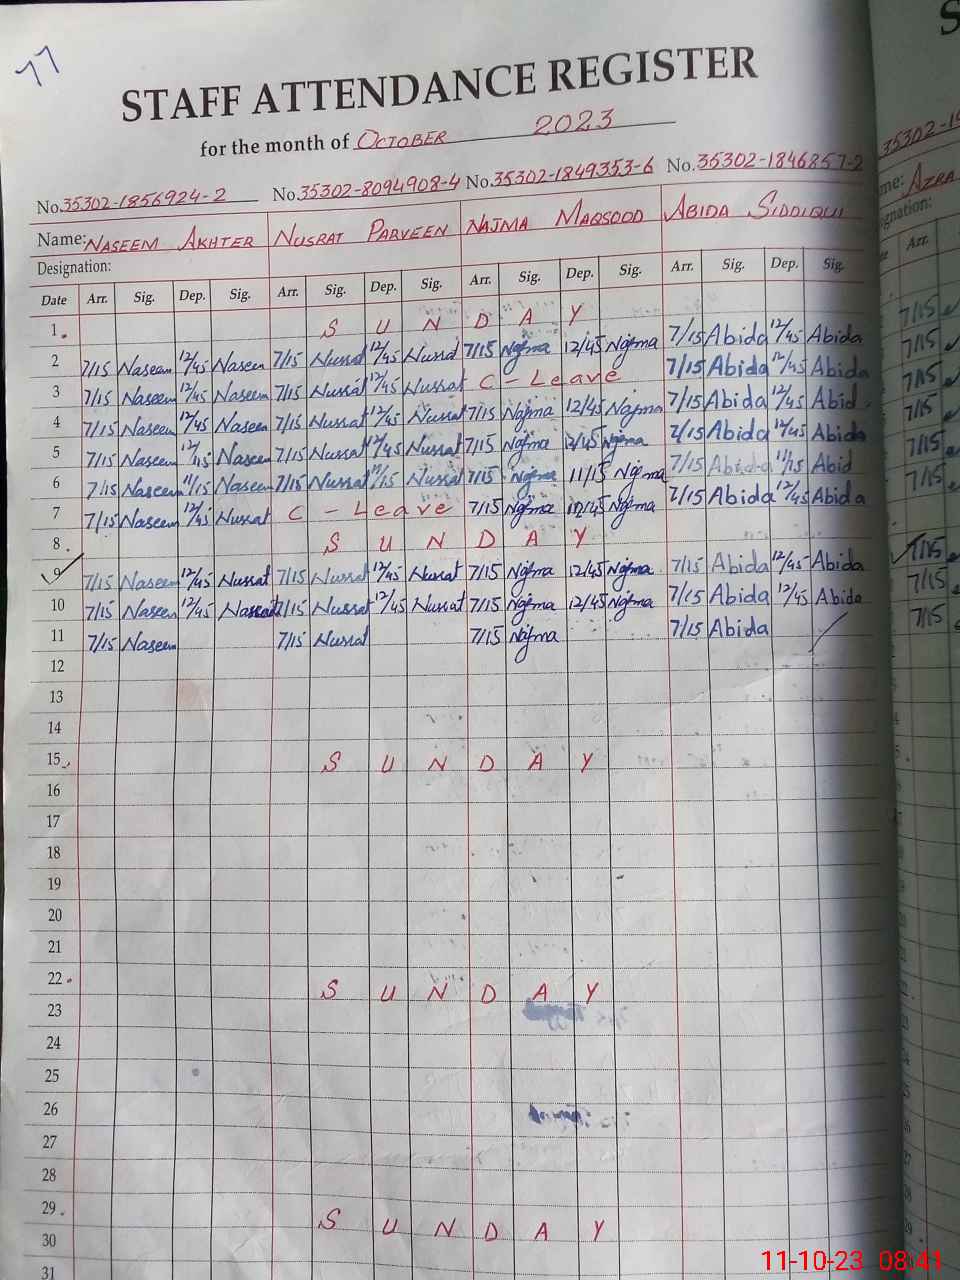 77
STAFF ATTENDANCE REGISTER
for the month of OCTOBER 2023
No. 35302-1856924-2 No. 35302-8094908-4 No. 35302-1849353-6 No. 35302-1846857-2
Name: NASEEM AKHTER NUSRAT PARVEEN NAJMA MAQSOOD ABIDA SIDDIQUI
Designation:
Date Arr. Sig. Dep. Sig. Arr. Sig. Dep. Sig. Arr. Sig. Dep. Sig. Arr. Sig. Dep. Sig.
1 S U N D A Y
2 7/15 Naseem 12/45 Naseem 7/15 Nusrat 12/45 Nusrat 7/15 Najma 12/45 Najma 7/15 Abida 12/45 Abida
3 7/15 Naseem 12/45 Naseem 7/15 Nusrat 12/45 Nusrat C - Leave 7/15 Abida 12/45 Abida
4 7/15 Naseem 12/45 Naseem 7/15 Nusrat 12/45 Nusrat 7/15 Najma 12/45 Najma 7/15 Abida 12/45 Abid
5 7/15 Naseem Naseem 7/15 Nusrat 12/45 Nusrat 7/15 Najma 12/45 Najma 7/15 Abida 12/45 Abida
6 7/15 Naseem 11/15 Naseem 7/15 Nusrat 11/15 Nusrat 7/15 Najma 11/15 Najma 7/15 Abida 11/15 Abid
7 7/15 Naseem 12/45 Nusrat C - Leave 7/15 Najma 12/45 Najma 7/15 Abida 12/45 Abida
8 S U N D A Y
9 7/15 Naseem 12/45 Nusrat 7/15 Nusrat 12/45 Nusrat 7/15 Najma 12/45 Najma 7/15 Abida 12/45 Abida
10 7/15 Naseem 12/45 7/15 Nusrat 12/45 Nusrat 7/15 Najma 12/45 Najma 7/15 Abida 12/45 Abida
11 7/15 Naseem 7/15 Nusrat 7/15 Najma 7/15 Abida
12
13
14
15 S U N D A Y
16
17
18
19
20
21
22 S U N D A Y
23
24
25
26
27
28
29 S U N D A Y
30
31
S
35302-19
me: AZRA
ignation:
Arr.
7/15
7/15
7/15
7/15
7/15
7/15
7/15
7/15
7/15
11-10-23 08:41